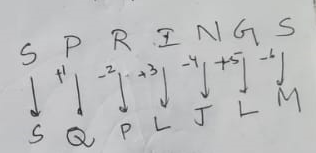 S P R I N G S
+1 -2 +3 -4 +5 -6
S Q P L J L M